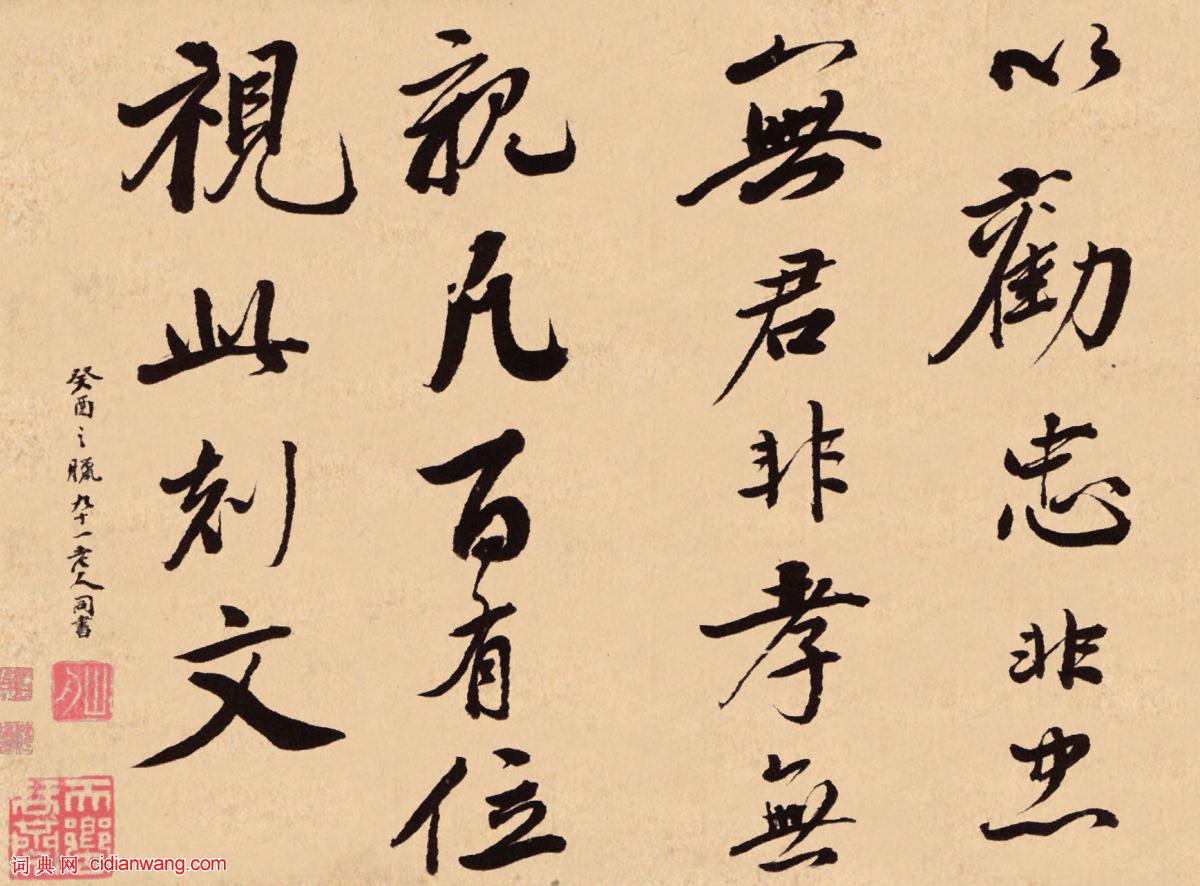 以勸忠非忠
無君非孝無
親凡百有位
視此刻文
癸酉之臘九十一老人同書
词典网 cidianwang.com